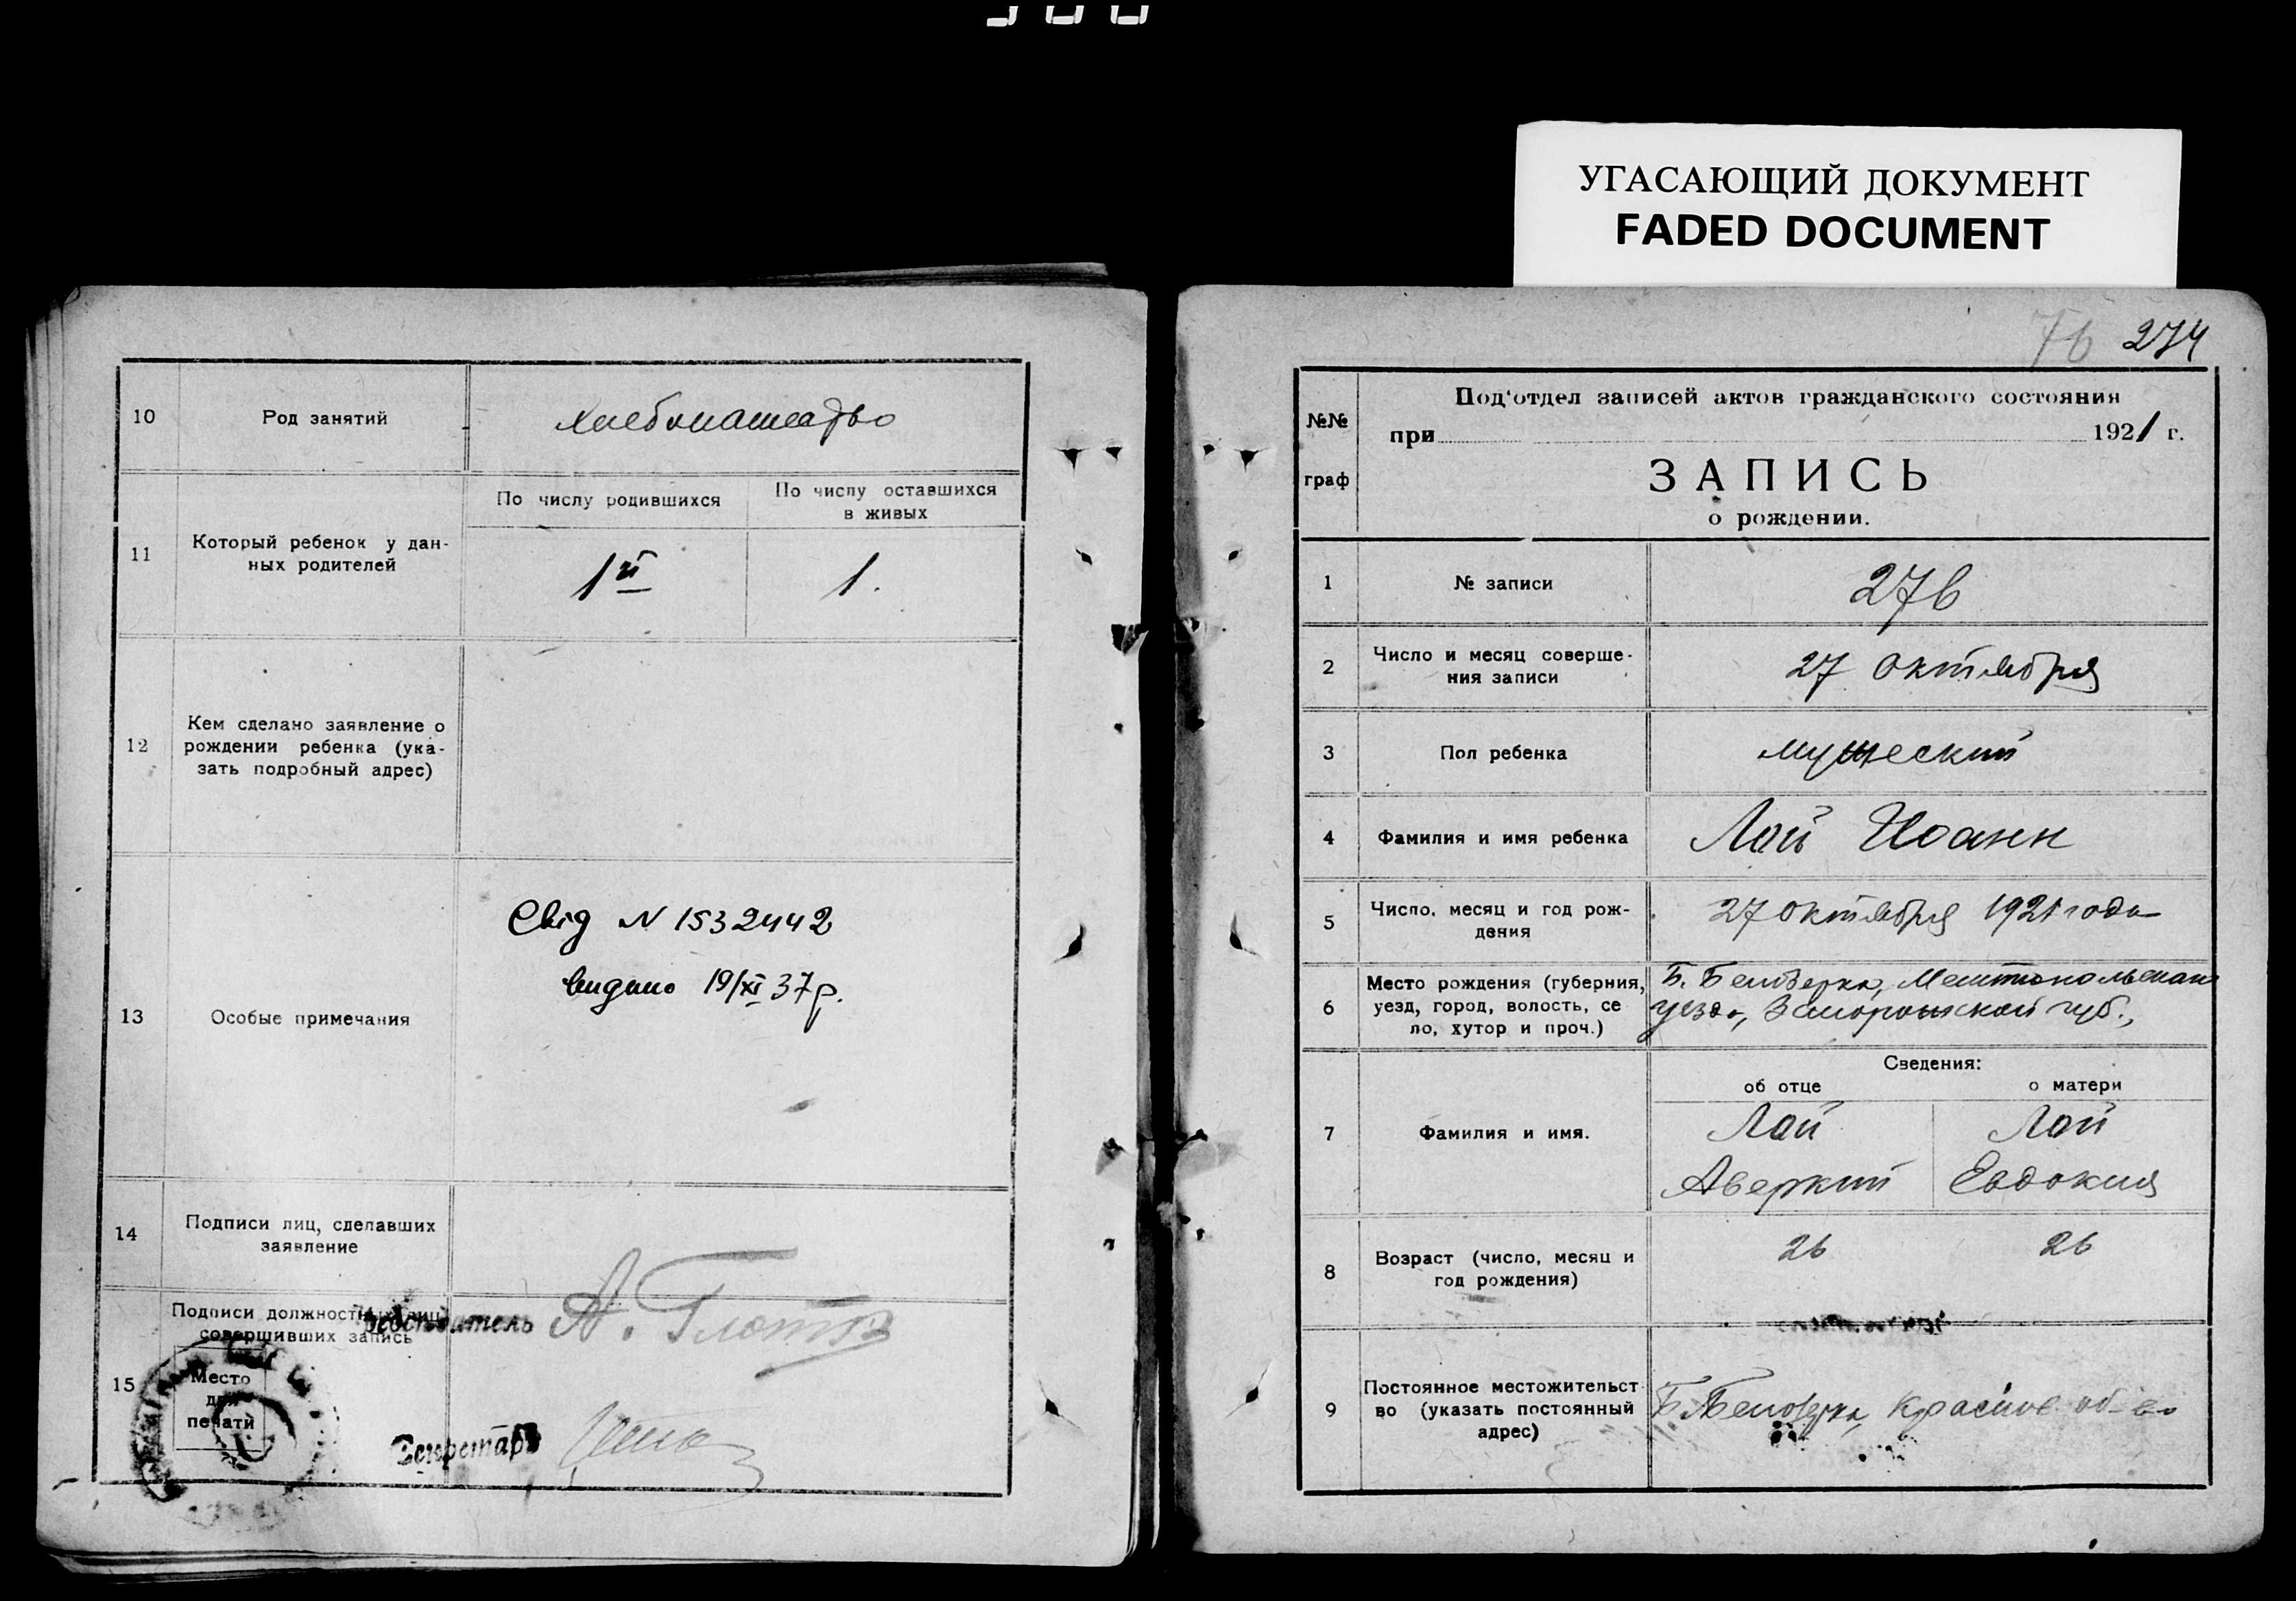 УГАСАЮЩИЙ ДОКУМЕНТ
FADED DOCUMENT
10
Род занятий
хлебопашество
11
Который ребенок у дан-
ных родителей
По числу родившихся
По числу оставшихся
в живых
1й
1.
12
Кем сделано заявление о
рождении ребенка (ука-
зать подробный адрес)
13
Особые примечания
Свід N 1532442
видано 19/XI 37р.
14
Подписи лиц, сделавших
заявление
15
Подписи должностных лиц,
совершивших запись
Председатель
Место
для
печати
Секретарь
76 274
№№
граф
Под'отдел записей актов гражданского состояния
при 1921 г.
ЗАПИСЬ
о рождении.
1
№ записи
276
2
Число и месяц соверше-
ния записи
27 октября
3
Пол ребенка
мужеский
4
Фамилия и имя ребенка
Лай Иоанн
5
Число, месяц и год рож-
дения
27 октября 1921 года
6
Место рождения (губерния,
уезд, город, волость, се
ло, хутор и проч.)
Б. Белозерка, Мелитопольскаго
уезда, Запорожской губ.,
Сведения:
об отце
о матери
7
Фамилия и имя.
Лай
Аверкий
Лай
Евдокия
8
Возраст (число, месяц и
год рождения)
26
26
9
Постоянное местожительст
во (указать постоянный
адрес)
Б. Белозерка, Красное об-во